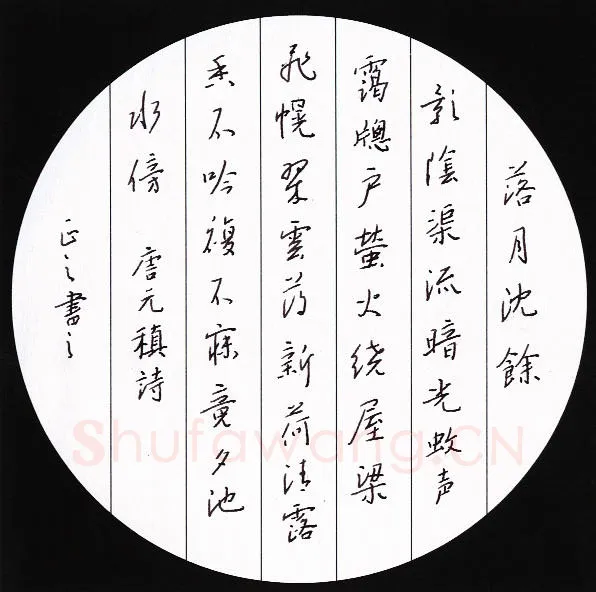 落月沈餘
影陰渠流暗光蚊声
靄牕户萤火绕屋梁
飛幌翠雲薄新荷清露
香不吟複不寐竟夕池
水傍 唐元稹詩
正之書之
Shufawang.CN